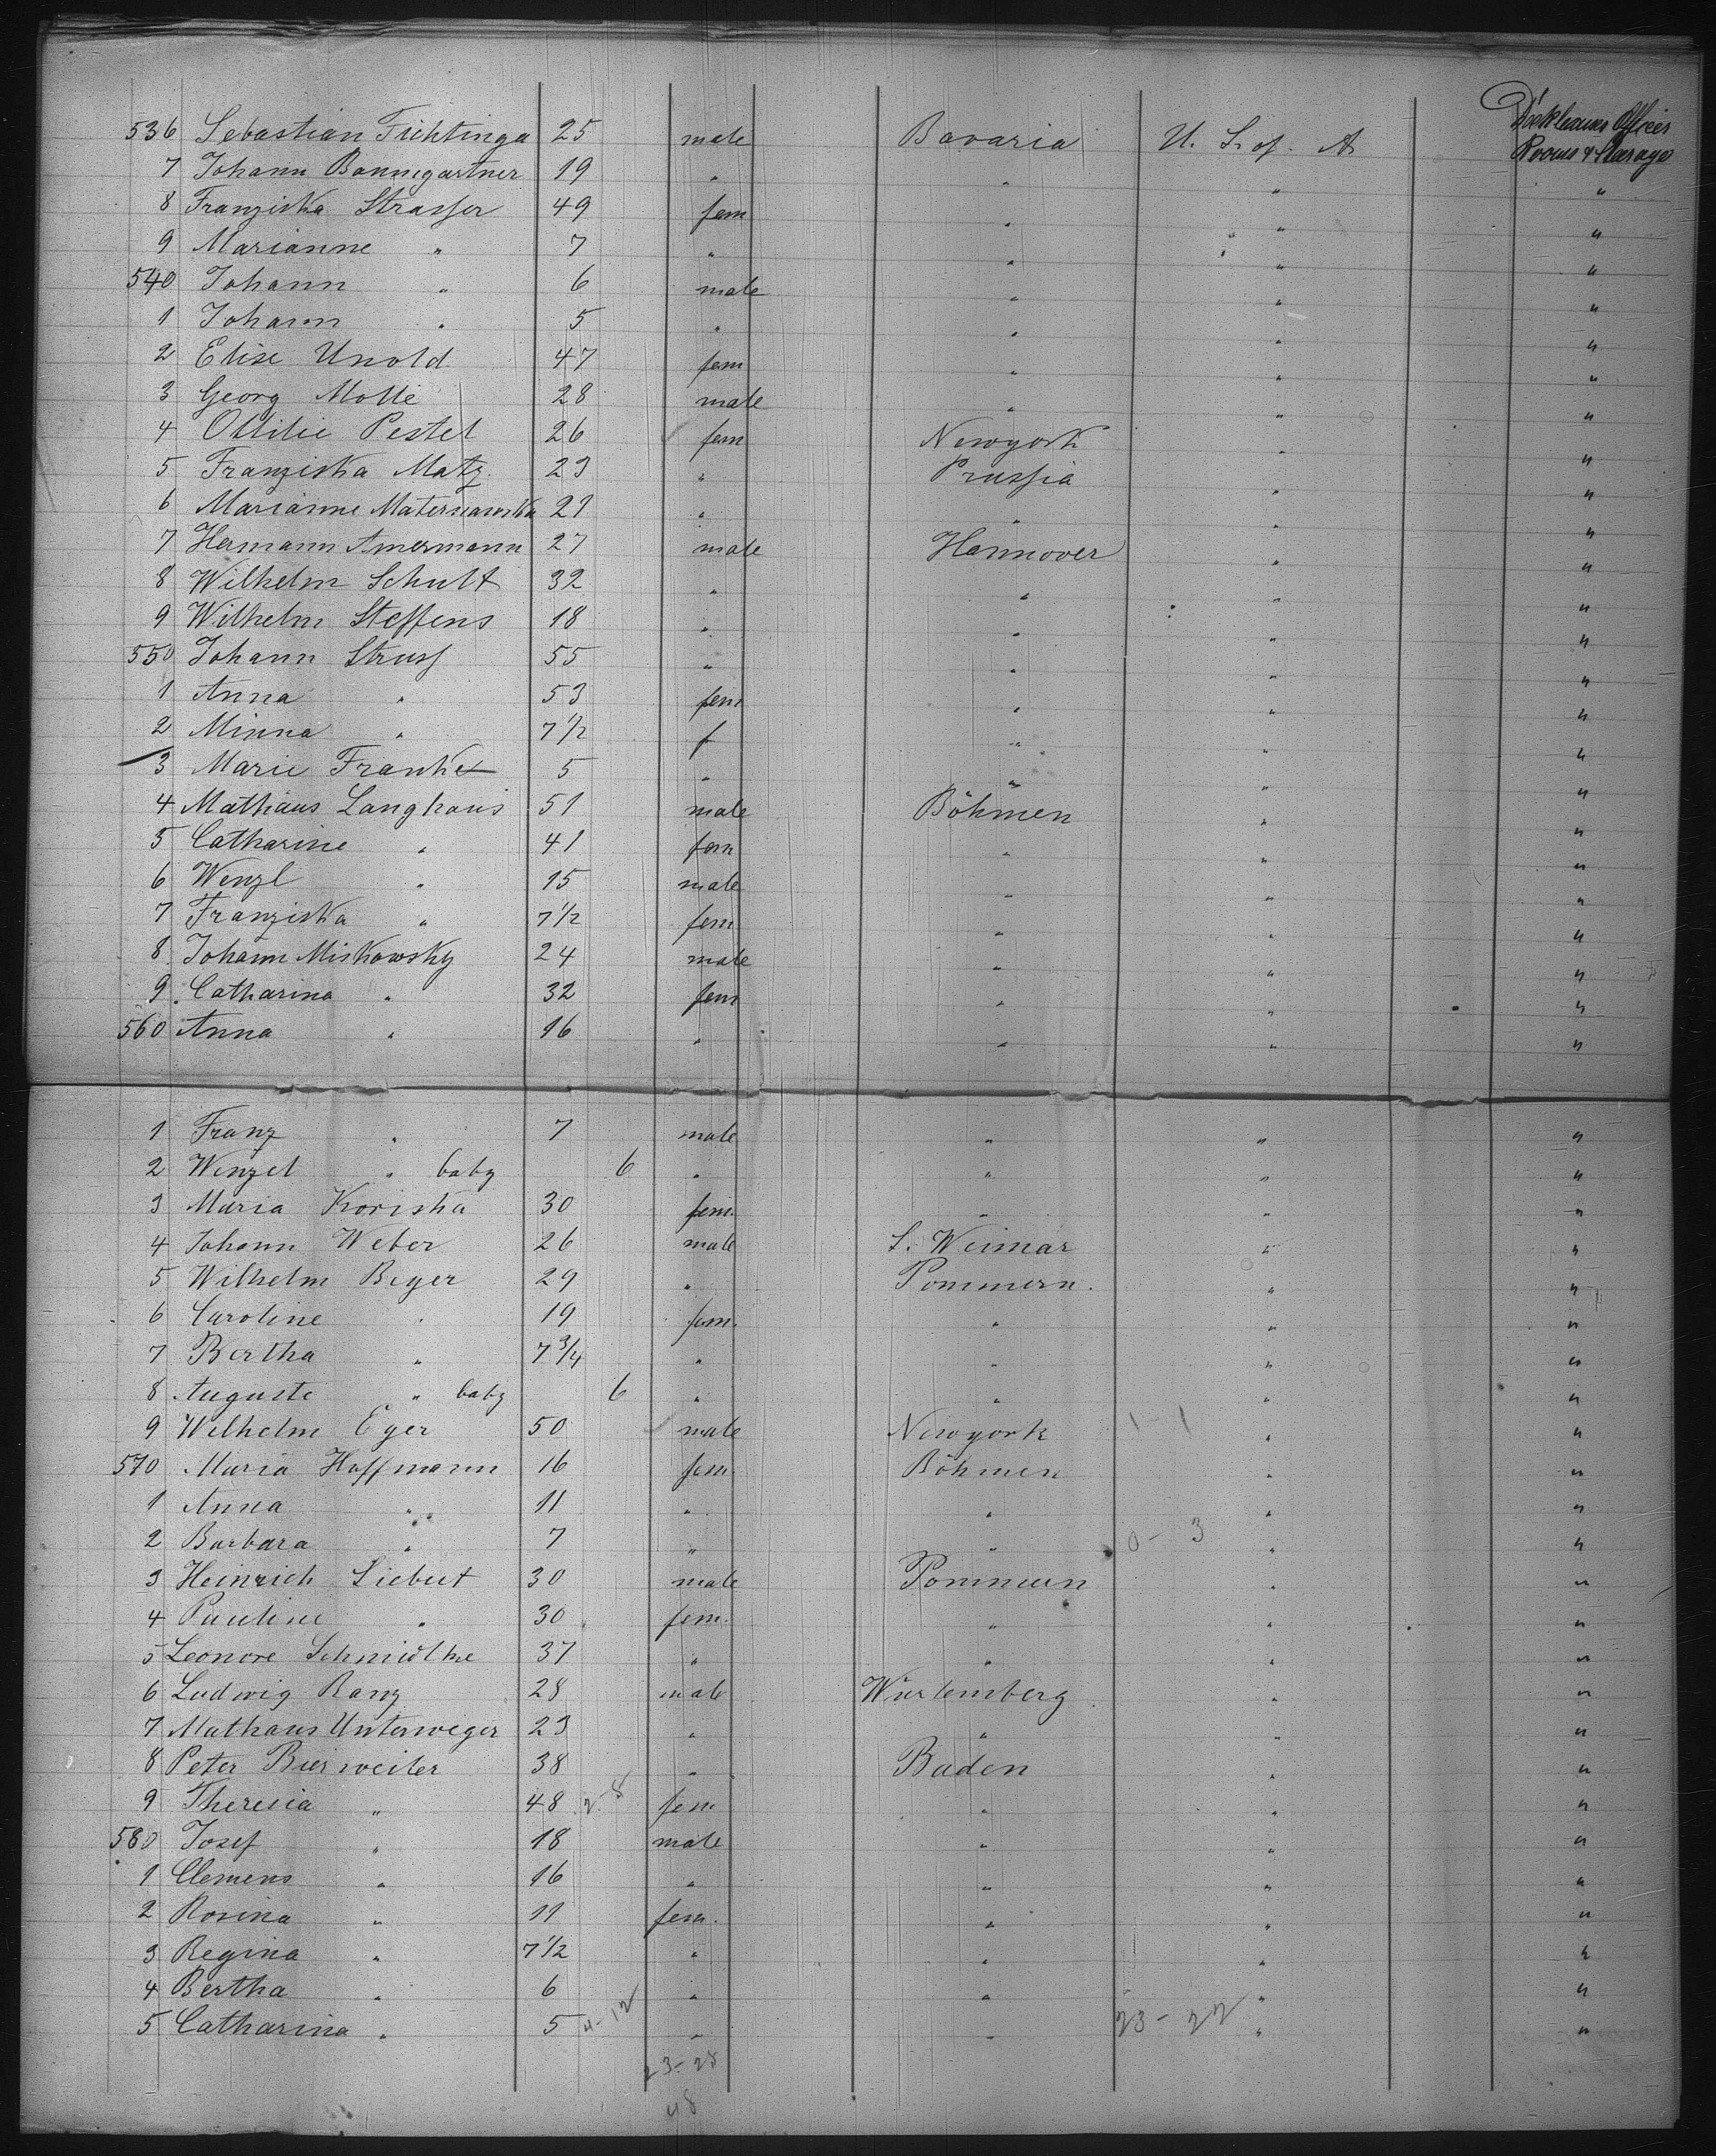 Dʳ Officer
Rooms & Stearage
536 Sebastian Fichtinga 25 male Bavaria U. S. of. A.
7 Johann Baumgartner 19 " " " "
8 Franziska Strasser 49 fem " " "
9 Marianne " 7 " " " "
540 Johann " 6 male " " "
1 Johann " 5 " " " "
2 Elise Unold 47 fem " " "
3 Georg Molle 28 male " " "
4 Ottilie Pestel 26 fem Newyork " "
5 Franziska Matz 23 " Prussia " "
6 Marianne 21 " " " "
7 Hermann Amermann 27 male Hannover " "
8 Wilhelm Schult 32 " " " "
9 Wilhelm Steffens 18 " " " "
550 Johann Struss 55 " " " "
1 Anna " 53 fem " " "
2 Minna " 7 1/2 f " " "
3 Marie Franke 5 " " " "
4 Mathias Langhans 51 male Böhmen " "
5 Catharine " 41 fem " " "
6 Wenzl " 15 male " " "
7 Franziska " 7 1/2 fem " " "
8 Johann Miskowsky 24 male " " "
9 Catharina " 32 fem " " "
560 Anna " 16 " " " "
1 Franz " 7 male " " "
2 Wenzel " baby 6 " " " "
3 Maria Koriska 30 fem. " " "
4 Johann Weber 26 male S. Weimar " "
5 Wilhelm Beyer 29 " Pommern. " "
6 Caroline " 19 fem. " " "
7 Bertha " 7 3/4 " " " "
8 Auguste " baby 6 " " " "
9 Wilhelm Eger 50 male Newyork 1 - 1 " "
570 Maria Hoffmann 16 fem. Böhmen " "
1 Anna " 11 " " " "
2 Barbara " 7 " " 0 - 3 " "
3 Heinrich Siebert 30 male Pommern " "
4 Pauline " 30 fem. " " "
5 Leonore Schmidtke 37 " " " "
6 Ludwig Ranz 28 male Würtemberg " "
7 Mathaus Unterweger 23 " " " "
8 Peter Bierweiler 38 " Baden " "
9 Theresia " 48 2-8 fem " " "
580 Josef " 18 male " " "
1 Clemens " 16 " " " "
2 Rosina " 11 fem. " " "
3 Regina " 7 1/2 " " " "
4 Bertha " 6 " " " "
5 Catharina " 5 4-12 " " 23 - 22 " "
23-25
48